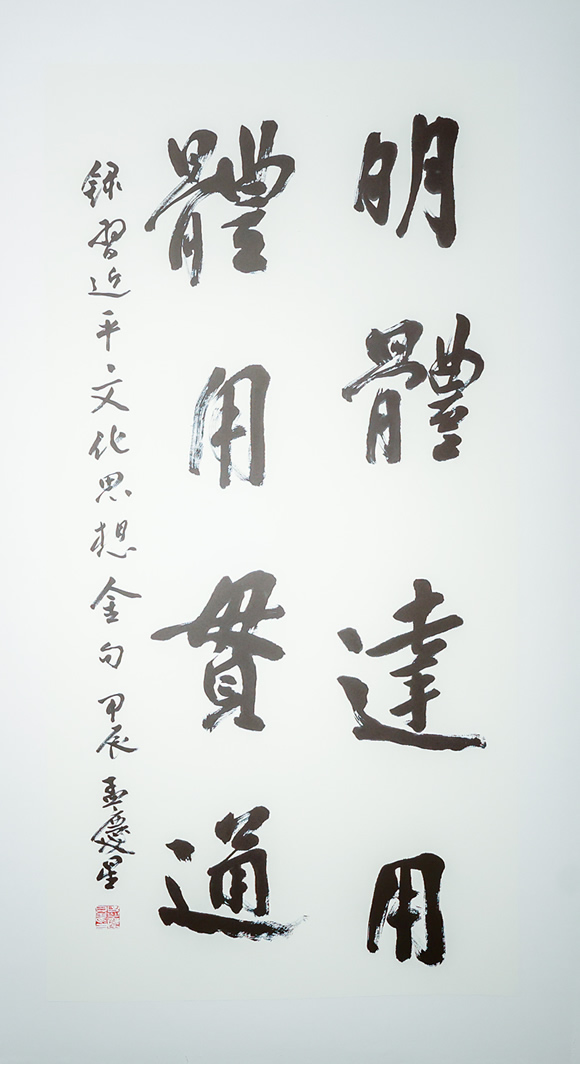 明體達用
體用貫通
録習近平文化思想金句 甲辰 孟慶星